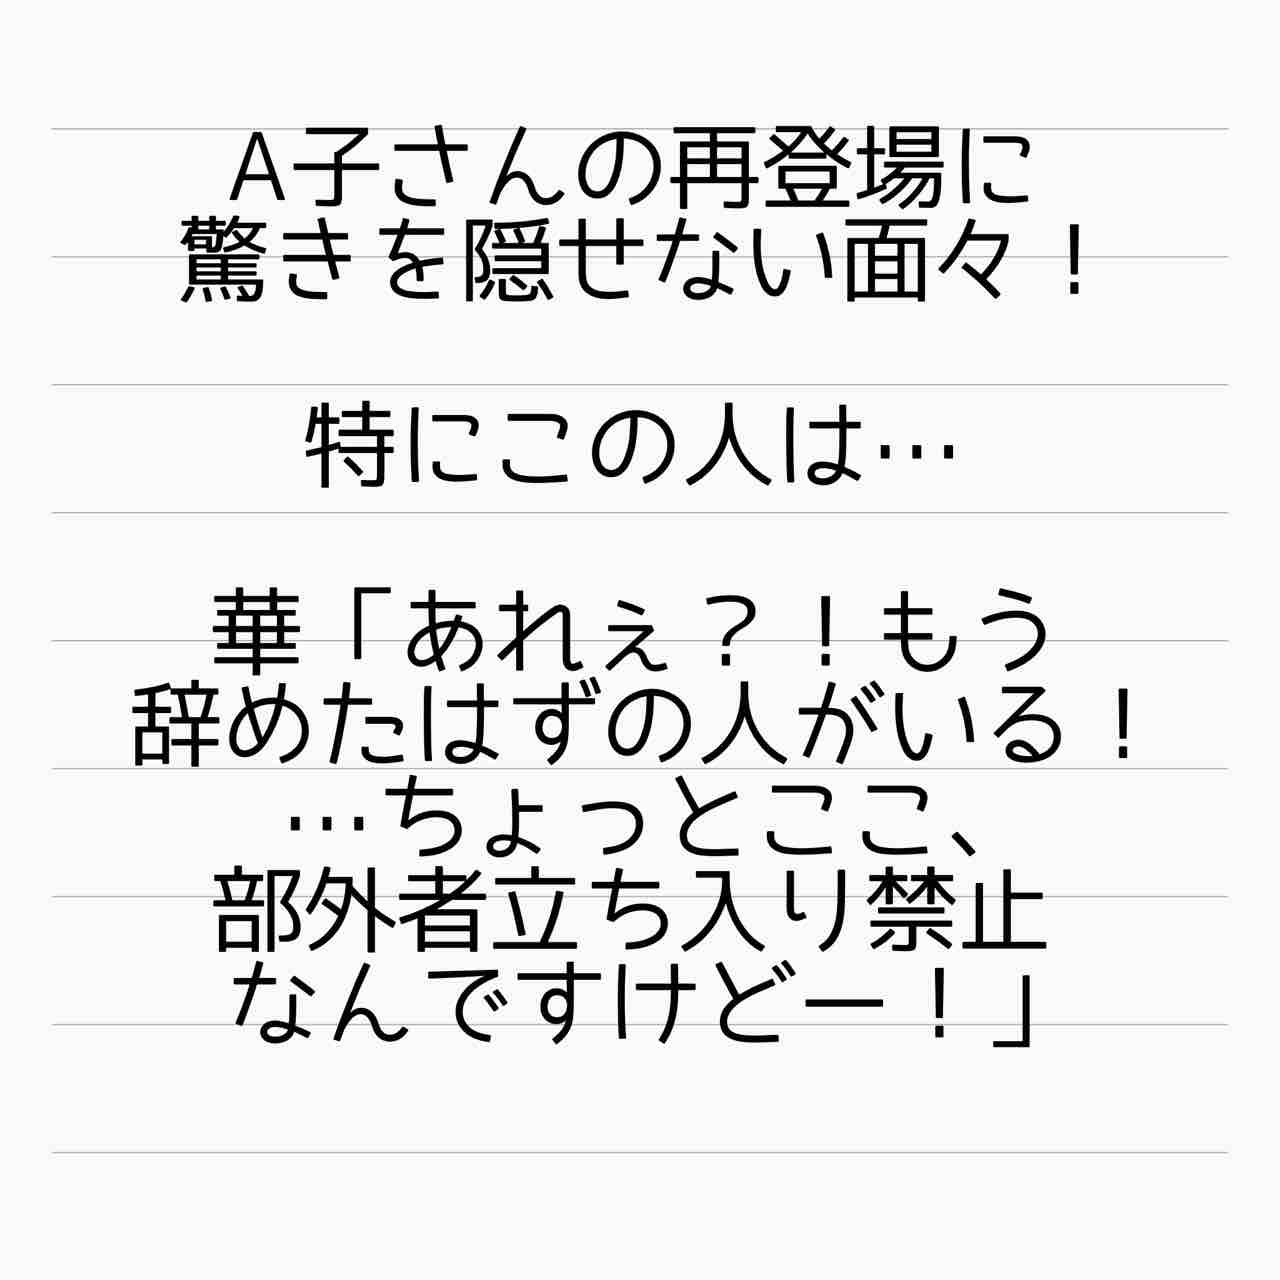 A子さんの再登場に
驚きを隠せない面々！
特にこの人は…
華「あれぇ？！もう
辞めたはずの人がいる！
…ちょっとここ、
部外者立ち入り禁止
なんですけどー！」